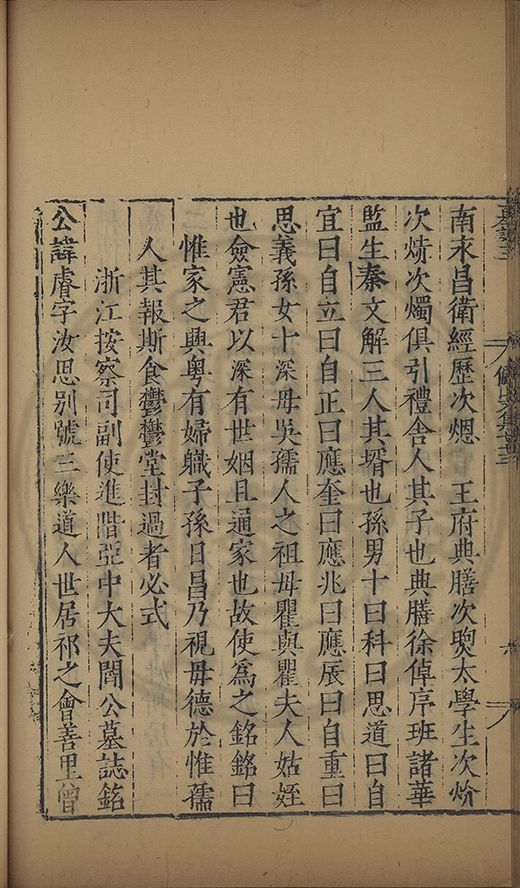 南末昌衛經歷次熜 王府典膳次煛太學生次炌
次㷩次燭俱引禮舍人其子也典膳徐倬序班諸華
監生秦文解三人其壻也孫男十曰科曰思道曰自
宜曰自立曰自正曰應奎曰應兆曰應辰曰自重曰
思義孫女十深母吳孺人之祖母瞿與瞿夫人姑姪
也僉憲君以深有世姻且通家也故使爲之銘銘曰
惟家之興粤有婦職子孫日昌乃視毋德於惟孺
人其報斯食鬱鬱堂封過者必式
浙江按察司副使進階亞中大夫閻公墓誌銘
公諱睿字汝思别號三樂道人世居祁之會善里曾